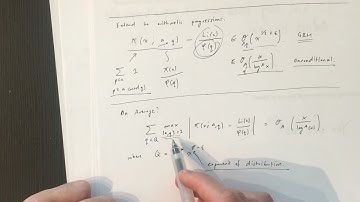 Extend to arithmetic progressions.
π(x, a, q) - Li(x)/φ(q) ∈ O(x^{1/2+ε}) GRH
Σ 1
p ≤ x
p ≡ a (mod q)
Li(x)/φ(q) ∈ O_A(x/log^A x) Unconditional
On Average?
Σ_{q≤Q} max_{(a,q)=1} | π(x; a, q) - Li(x)/φ(q) | = O_A(x/log^A(x))
where Q =
exponent of distribution.